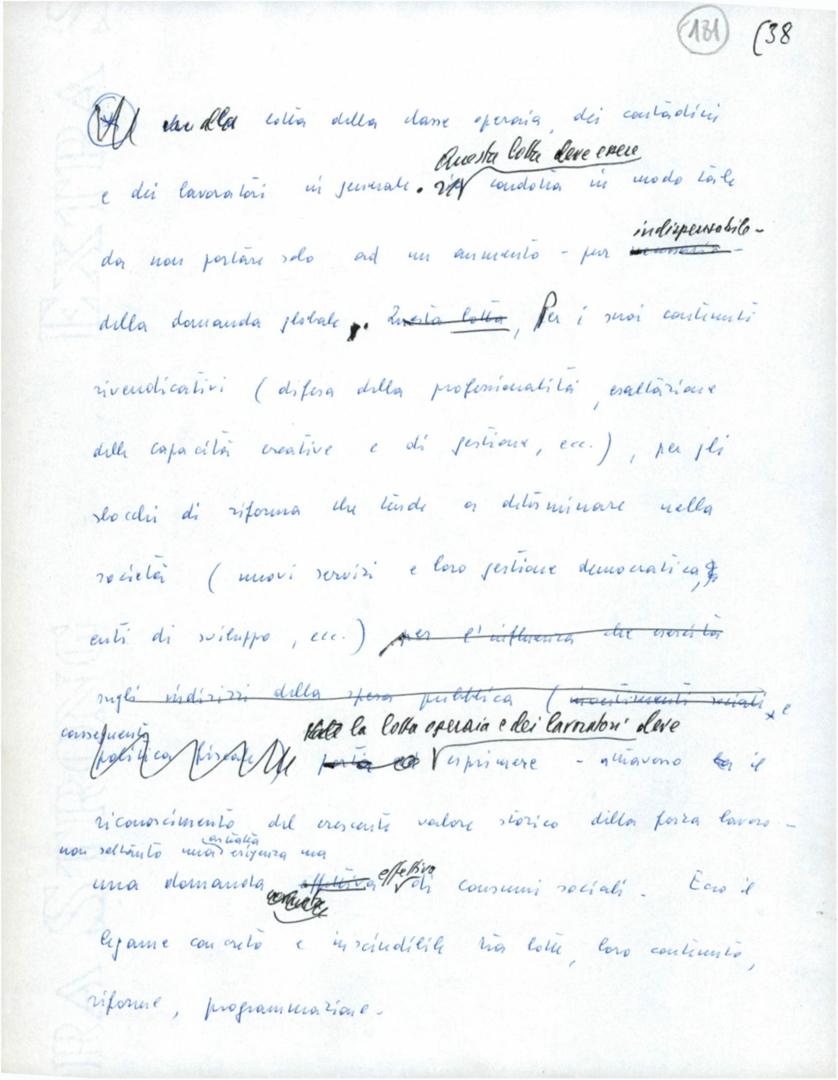 181 (38
che dalla lotta della classe operaia, dei contadini
Questa lotta deve essere
e dei lavoratori in generale. condotta in modo tale
indispensabile -
da non portare solo ad un aumento - pur necessario -
della domanda globale. Questa lotta, Per i suoi contenuti
rivendicativi (difesa della professionalità, esaltazione
delle capacità creative e di gestione, ecc.), per gli
sbocchi di riforma che tende a determinare nella
società (nuovi servizi e loro gestione democratica,
enti di sviluppo, ecc.) per l'influenza che esercita
sugli indirizzi della spesa pubblica (investimenti sociali e
conseguente
la lotta operaia e dei lavoratori deve
politica fiscale) porta ad esprimere - attraverso il
riconoscimento del crescente valore storico della forza lavoro -
astratta
non soltanto una esigenza ma
effettiva
una domanda effettiva di consumi sociali. Ecco il
legame concreto e inscindibile tra lotte, loro contenuto,
riforme, programmazione.